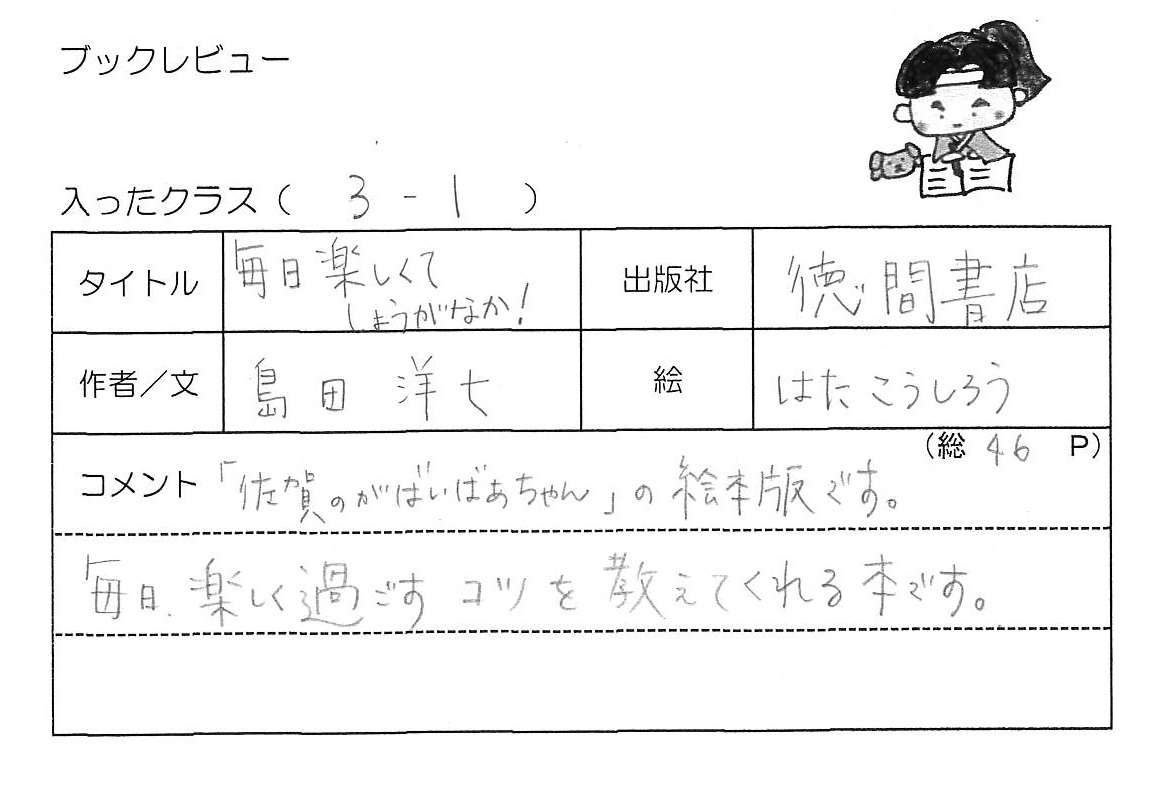 ブックレビュー
入ったクラス（ 3 - 1 ）
タイトル 毎日楽しくて
しょうがなか！
出版社 徳間書店
作者／文 島田 洋七
絵 はた こうしろう
（総 46 P）
コメント 「佐賀のがばいばあちゃん」の絵本版です。
毎日、楽しく過ごすコツを教えてくれる本です。